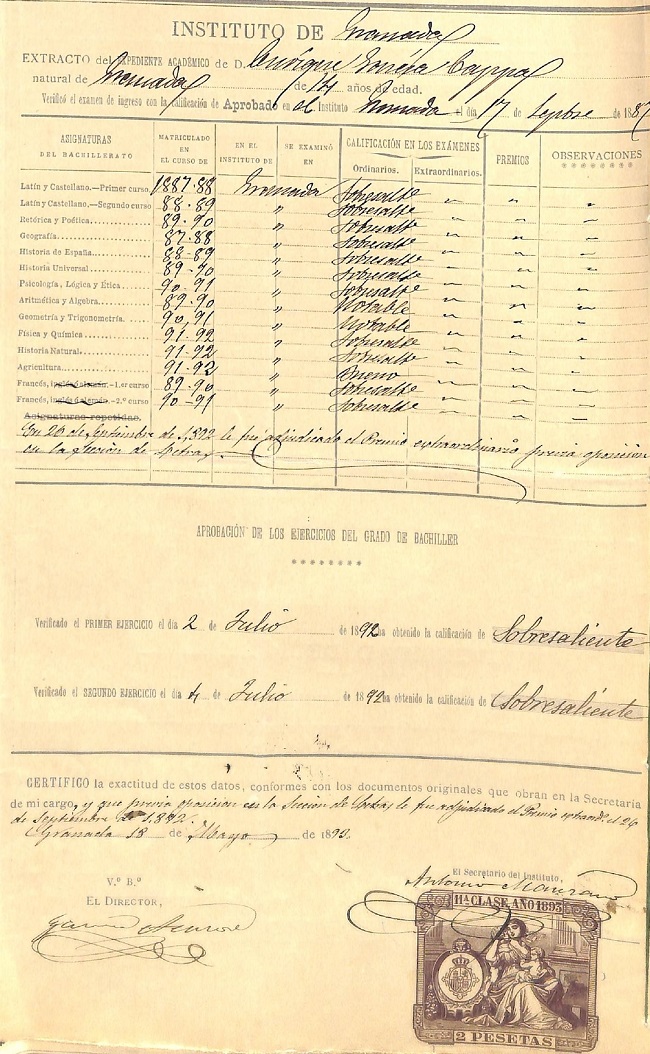 INSTITUTO DE Granada
EXTRACTO del EXPEDIENTE ACADÉMICO de D. Enrique García Cappa
natural de Granada de 14 años de edad.
Verificó el examen de ingreso con la calificación de Aprobado en el Instituto Granada el día 17 de Septbre de 1887
ASIGNATURAS DEL BACHILLERATO MATRICULADO EN EL CURSO DE EN EL INSTITUTO DE SE EXAMINÓ EN CALIFICACIÓN EN LOS EXÁMENES PREMIOS OBSERVACIONES
Ordinarios. Extraordinarios.
Latín y Castellano.—Primer curso 1887-88 Granada Sobresalte " " "
Latín y Castellano.—Segundo curso 88-89 " Sobresalte " " "
Retórica y Poética 89-90 " Sobresalte " " "
Geografía 87-88 " Sobresalte " " "
Historia de España 88-89 " Sobresalte " " "
Historia Universal 89-90 " Sobresalte " " "
Psicología, Lógica y Ética 90-91 " Sobresalte " " "
Aritmética y Algebra 89-90 " Notable " " "
Geometría y Trigonometría. 90-91 " Notable " " "
Física y Química 91-92 " Sobresalte " " "
Historia Natural 91-92 " Sobresalte " " "
Agricultura 91-92 " Bueno " " "
Francés, inglés alemán.—1.er curso 89-90 " Sobresalte " " "
Francés, inglés alemán.—2.º curso 90-91 " Sobresalte " " "
Asignaturas repetidas.
En 26 de Septiembre de 1,892 le fué adjudicado el Premio extraordinario previa oposición
en la Sección de Letras
APROBACIÓN DE LOS EJERCICIOS DEL GRADO DE BACHILLER
Verificado el PRIMER EJERCICIO el día 2 de Julio de 1892 ha obtenido la calificación de Sobresaliente
Verificado el SEGUNDO EJERCICIO el día 4 de Julio de 1892 ha obtenido la calificación de Sobresaliente
CERTIFICO la exactitud de estos datos, conformes con los documentos originales que obran en la Secretaría
de mi cargo, y que previa oposición en la Sección de Letras le fue adjudicado el Premio extraord. el 26
de Septiembre de 1.892.
Granada 18 de Mayo de 1893.
V.º B.º
EL DIRECTOR,
El Secretario del Instituto,
Antonio
11ª CLASE, AÑO 1893
2 PESETAS